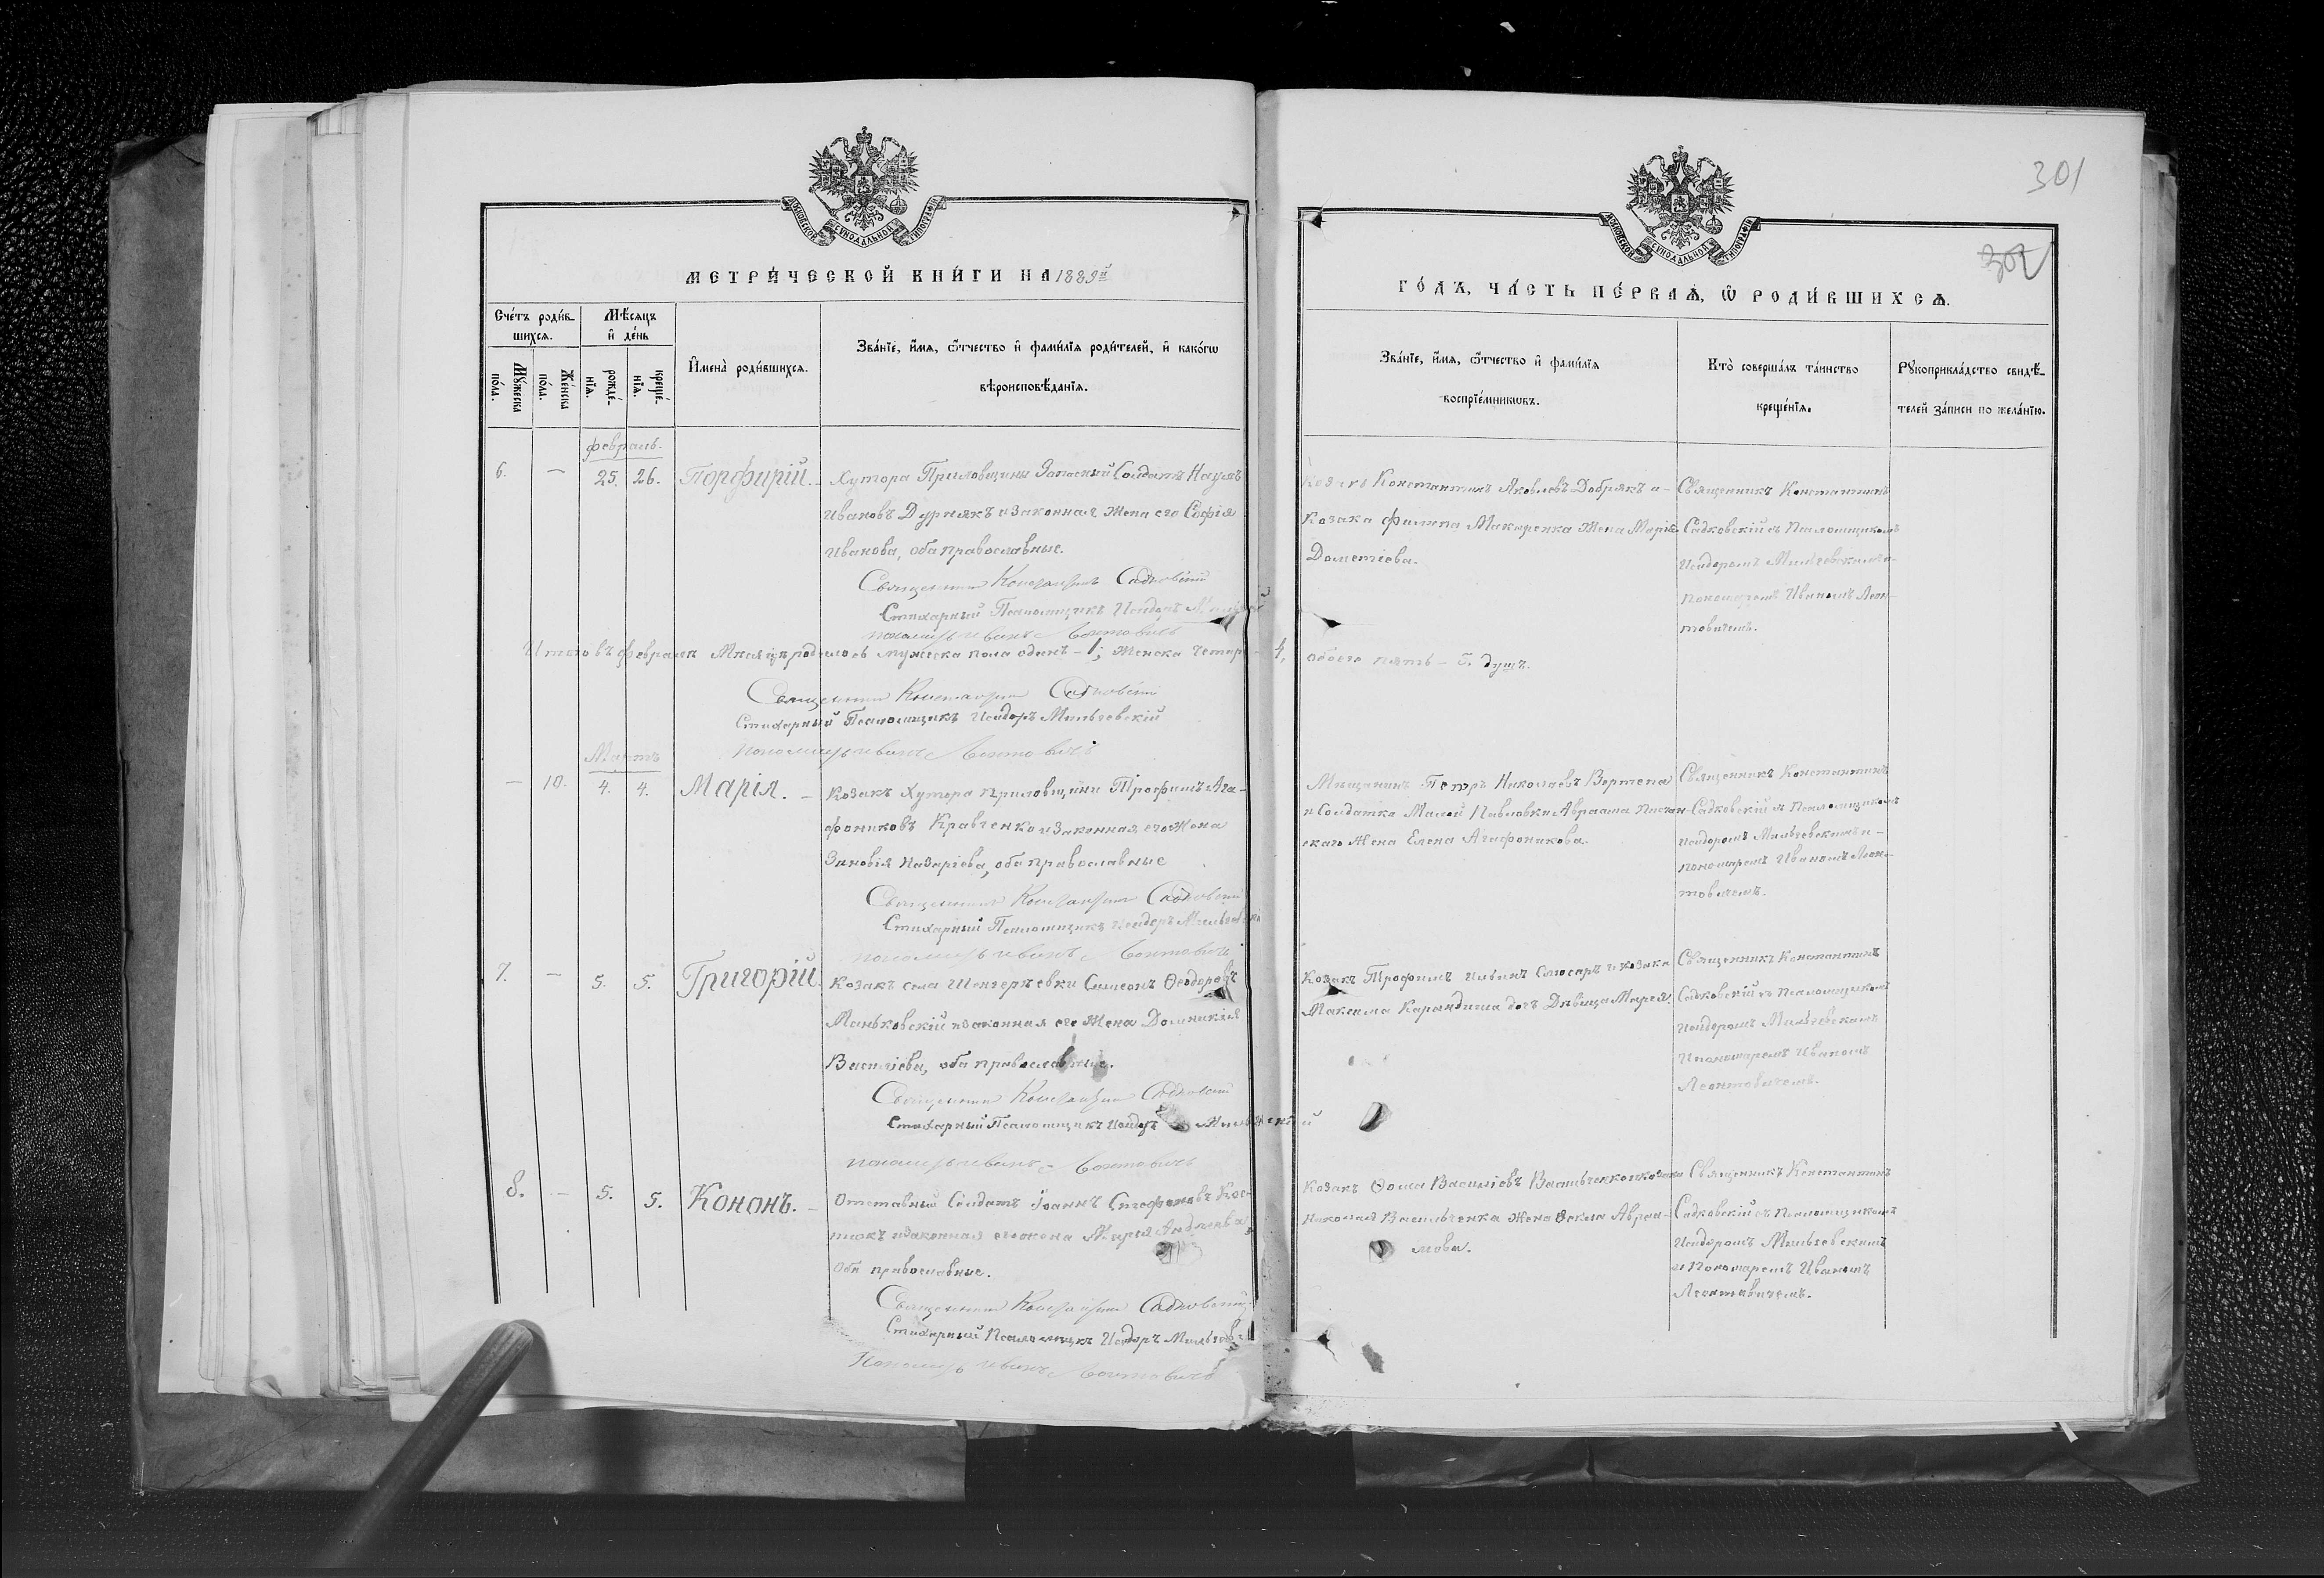 301
302
МОСКОВСКОЙ СѴНОДАЛЬНОЙ ТИПОГРАФІИ
МОСКОВСКОЙ СѴНОДАЛЬНОЙ ТИПОГРАФІИ
МЕТРИ́ЧЕСКОЙ КНИ́ГИ НА 1889й
ГО́ДЪ, ЧА́СТЬ ПЕ́РВАѦ, Ѡ РОДИ́ВШИХСѦ.
Сче́тъ роди́в-
шихся.
Мꙋжеска
по́ла.
Же́нска
по́ла.
Мѣ́сяцъ
и҆ де́нь
рожде́-
нїя.
креще́-
нїя.
И҆мена̀ роди́вшихся.
Зва́нїе, и҆́мя, ѻ҆́тчество и҆ фами́лїя роди́телей, и҆ како́гѡ
вѣроисповѣ́данїя.
Зва́нїе, и҆́мя, ѻ҆́тчество и҆ фами́лїя
воспрїе́мникѡвъ.
Кто̀ соверша́лъ та́инство
креще́нїя.
Рꙋкоприкла́дство свидѣ́-
телей за́писи по жела́нїю.
февраль.
6. — 25. 26. Порфирій. –
Хутора Приловщины Запасный Солдатъ Наумъ
Ивановъ Дурнякъ и законная жена его Софія
Иванова, оба православные.
Священникъ Константинъ Садковскій
Стихарный Псаломщикъ Исидоръ
пономарь Иванъ Леонтовичъ
Козакъ Константинъ Яковлевъ Добрякъ и-
Козака Филипа Макаренка Жена Марія
Дометіева.
Священникъ Константинъ
Садковскій съ Псаломщикомъ
Исидоромъ Мильчевскимъ и-
пономаремъ Иваномъ Леон-
товичемъ.
Итого въ февралѣ Мѣсяцѣ родилось мужеска пола одинъ – 1; женска четыре – 4,
обоего пять – 5. душъ.
Священникъ Константинъ Садковскій
Стихарный Псаломщикъ Исидоръ Мильчевскій
пономарь Иванъ Леонтовичъ
Мартъ
— 10. 4. 4. Марія. –
Козакъ Хутора Приловщины Трофимъ Ага-
фониковъ Кравченко и Законная его Жена
Зиновія Назаріева, оба православные
Священникъ Константинъ Садковскій
Стихарный Псаломщикъ Исидоръ Мильчевскій
пономарь Иванъ Леонтовичъ
Мещанинъ Петръ Николаевъ Вертепа
и Солдатка Малой Павловки Авраама
скаго Жена Елена Агафоникова.
Священникъ Константинъ
Садковскій съ Псаломщикомъ
Исидоромъ Мильчевскимъ и –
пономаремъ Иваномъ Леон-
товичемъ.
7. — 5. 5. Григорій.
Козакъ села Симеонъ Ѳеодоровъ
Маньковскій и законная его Жена Домникія
Василіева, оба православные.
Священникъ Константинъ Садковскій
Стихарный Псаломщикъ Исидоръ Мильчевскій
пономарь Иванъ Леонтовичъ
Козакъ Трофимъ Ильинъ Слюсарь и козака
Максима Карандиша дочь Дѣвица Марея.
Священникъ Константинъ
Садковскій съ Псаломщикомъ
Исидоромъ Мильчевскимъ
и пономаремъ Иваномъ
Леонтовичемъ.
8. — 5. 5. Кононъ. –
Отставный Солдатъ Іоаннъ Стефановъ Кос-
тюкъ и законная его жена Марія Андреева,
Оба православные.
Священникъ Константинъ Садковскій
Стихарный Псаломщикъ Исидоръ
Пономарь Иванъ Леонтовичъ
Козакъ Ѳома Василіевъ Васильченко и козака
Николая Васильченка Жена Ѳекла Авраа-
мова.
Священникъ Константинъ
Садковскій съ Псаломщикомъ
Исидоромъ Мильчевскимъ
и Пономаремъ Иваномъ
Леонтовичемъ.